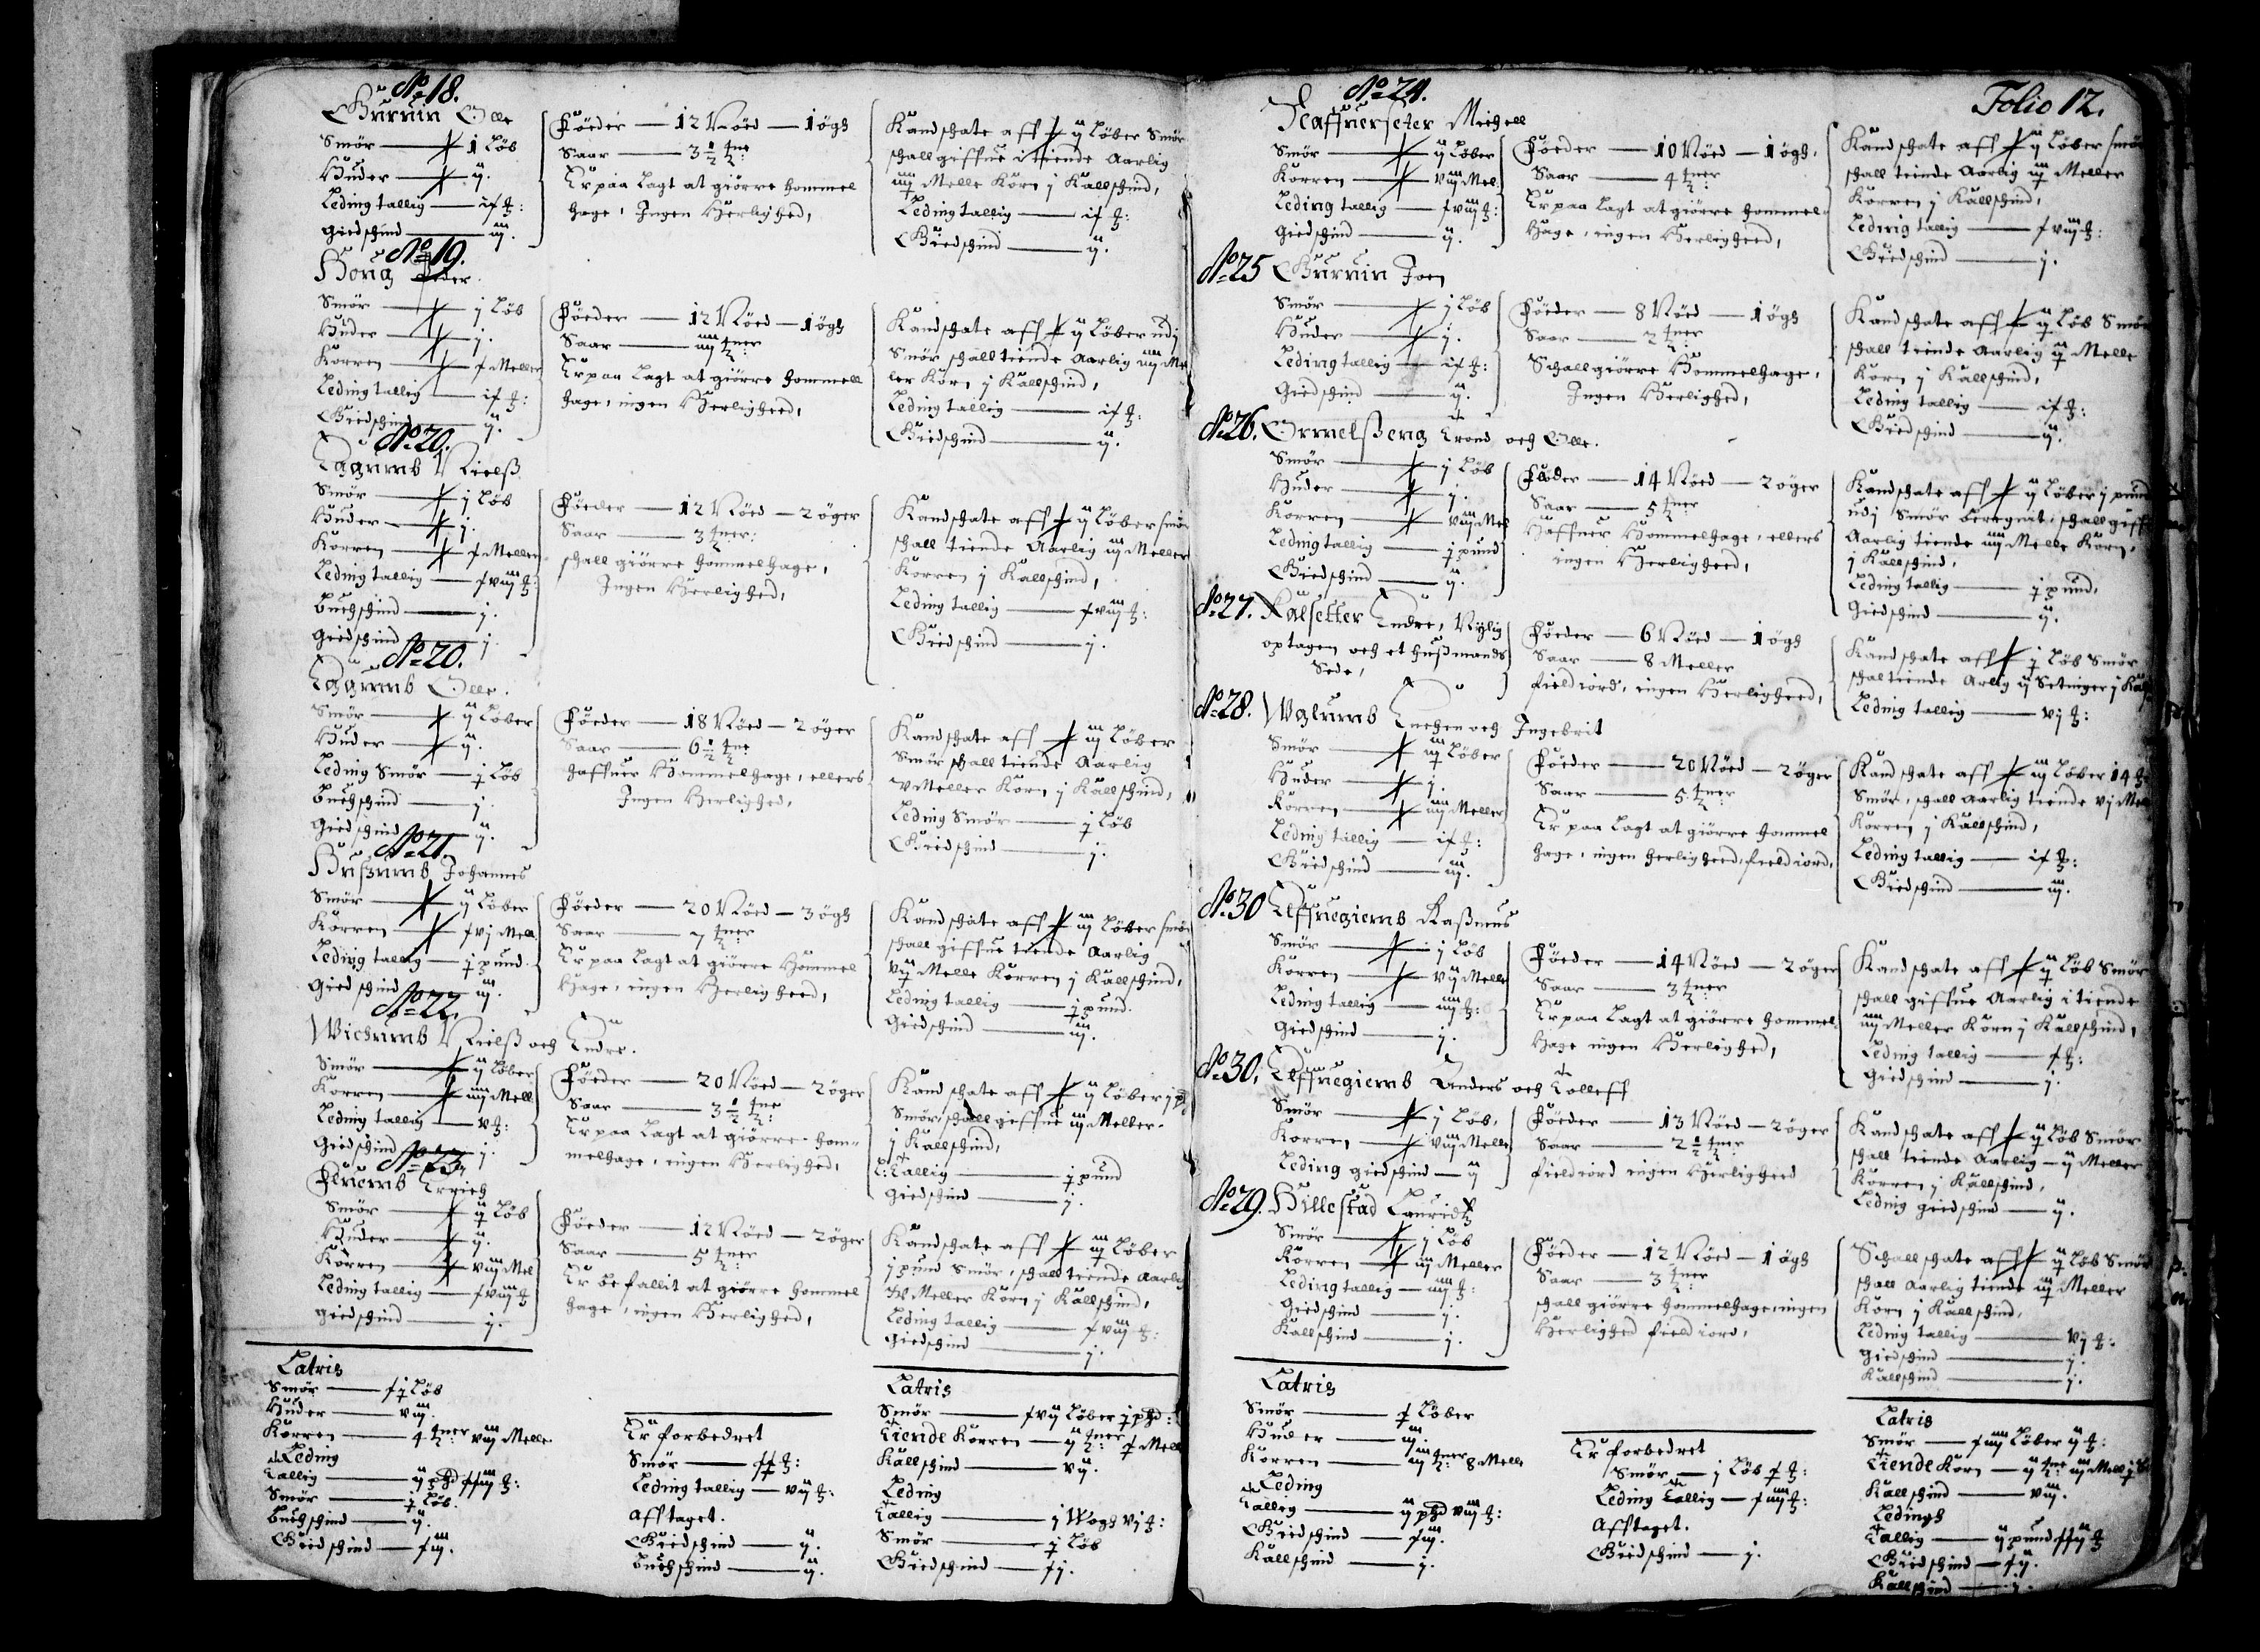 No 18.
Gurvin Olle
Smör — 1 Löb
Huder — ij.
Leding tallig — ix ℔:
Giedschind — iij.
Föeder — 12 Nöed — 1 ögh
Saar — 3 ½ tnr
Er paa lagt at giörre hommel
hage, Ingen Herlighed,
Kand schate aff ij Löber Smör
schall giffue i tiende Aarlig
iiij Melle Korn j Kallschind,
Leding tallig — ix ℔:
Giedschind — ij.
No 19.
Höng Peder.
Smör — j Löb
Huder — j.
Korren — x Meller
Leding tallig — ix ℔:
Giedschind — ij.
Föeder — 12 Nöed — 1 ögh
Saar — iiij tner
Er paa lagt at giörre hommell
hage, ingen Herligheed,
Kand schate aff ij Löber udj
Smör schall tiende Aarlig iiij Mel
ler Korn j Kallschind,
Leding tallig — ix ℔:
Giedschind — ij.
No 20.
Niels
Smör — j Löb
Huder — j.
Korren — x Meller
Leding tallig — xviij ℔:
Buchschind — j.
Giedschind — j.
Föeder — 12 Nöed — 2 öger
Saar — 3 tner:
schall giörre hommelhage,
Ingen Herlighed,
Kand schate aff ij Löber smör
schall tiende Aarlig iij Meller
Korren j Kallschind,
Leding tallig — xviij ℔:
Giedschind — j.
No 20.
Olle.
Smör — ij Löber
Huder — ij.
Leding Smör — ½ Löb
Buchschind — j.
Giedschind — ij.
Föeder — 18 Nöed — 2 öger
Saar — 6 ½ tnr
haffuer Hommelhage, ellers
Ingen Herlighed,
Kand schate aff iij Löber
Smör schall tiende Aarlig
v Meller Korn j Kallschind,
Leding Smör — ½ Löb
Giedschind — j.
No 21.
Husumb Johannes
Smör — ij Löber
Korren — xvj Mell
Leding tallig — ½ pund.
Giedschind — iij.
Föeder — 20 Nöed — 3 ögh
Saar — 7 tner
Er paa lagt at giörre Hommel
Hage, ingen Herligheed,
Kand schate aff iij Löber smör
schall giffue tiende Aarlig
Melle Korren j Kallschind,
Leding tallig — ½ pund.
Giedschind — iij.
No 22.
Wichumb Nielss och Endre.
Smör — ij Löber
Korren — iiij Mell
Leding tallig — v ℔:
Giedschind — j.
Föeder — 20 Nöed — 2 öger
Saar — 3 ½ tnr
Er paa lagt at giörre hom-
melhage, ingen Herlighed,
Kand schate aff ij Löber j pd
Smör, schall giffue iij Meller
j Kallschind,
L: Tallig — ½ pund
Giedschind — j.
No 23.
Erich
Smör — Löb
Huder — ij.
Korren — viij Mel
Leding tallig — xviij ℔
Giedschind — j.
Föeder — 12 Nöed — 2 öger
Saar — 5 tner
Er befallit at giörre hommel
hage, ingen Herlighed,
Kand schate aff Löber
j pund Smör, schall tiende Aarlig
Meller Korn j Kallschind,
Leding tallig — xviij ℔:
Giedschind — j.
Latris
Smör — Löb
Huder — viij.
Korren — 4 tner viij Melle
Leding
Tallig — ij pd xxiiij ℔:
Smör — ½ Löb.
Buchschind — ij.
Giedschind — xiij.
Er forbedret
Smör — ℔:
Leding tallig — vij ℔:
Aff taget.
Giedschind — ij.
Buchschind — ij.
Latris
Smör — xvij Löber ½ pd:
Tiende Korren — ij tner Mell
Kallschind — vij.
Leding
Tallig — j Wogh vj ℔:
Smör — ½ Löb
Giedschind — xj.
Folio 12.
No 24.
Michell
Smör — ij Löber
Korren — viij Mel.
Leding tallig — xviij ℔:
Giedschind — ij.
Föeder — 10 Nöed — 1 ögh,
Saar — 4 tner
Er paa lagt at giörre hommel-
hage, ingen Herligheed,
Kand schate aff ij Löber smör
schall tiende Aarlig Meller
Korren j Kallschind,
Leding tallig — xviij ℔:
Giedschind — j.
No 25 Gurvin Joen
Smör — j Löb
Huder — j.
Leding tallig — ix ℔:
Giedschind — ij.
Föeder — 8 Nöed — 1 ögh
Saar — 2 tner
Schall giörre Hommelhage,
Ingen Herlighed,
Kand schate aff Löb Smör
schall tiende Aarlig Melle
Korn j Kallschind,
Leding tallig — ix ℔:
Giedschind — ij.
No 26. Ormelsseng Trond och Olle.
Smör — j Löb
Huder — j.
Korren — viij Mel
Leding tallig — ½ pund
Giedschind — ij.
Föder — 14 Nöed — 2 öger
Saar — 5 tner
Haffuer Hommelhage, ellers
ingen Herlighed,
Kand schate aff ij Löber j pund
udj Smör beregnet, schall giffue
Aarlig tiende iiij Melle Korn,
j Kallschind,
Leding tallig — ½ pund,
Giedschind — ij.
No 27. Kalsetter Endre, Nylig
optagen och et hussmands
Sede,
Föeder — 6 Nöed — 1 ögh
Saar — 8 Meller
field iord, ingen Herligheed,
Kand schate aff ½ Löb Smör
schal tiende Arlig ij Setinger j Kalsch
Leding tallig — vj ℔:
No 28. Ingebrit
Smör — Löber
Huder — j.
Korren — iiij Meller
Leding tallig — ix ℔:
Giedschind — iij.
Föeder — 20 Nöed — 2 öger
Saar — 5 tner
Er paa lagt at giörre hommel
hage, ingen herligheed, field iord,
Kand schate aff iij Löber 14 ℔
Smör, schall aarlig tiende vj Mel
Korren j Kallschind,
Leding tallig — ix ℔:
Giedschind — iij.
No 30 Rassmus
Smör — j Löb
Korren — vij Melle
Leding tallig — iiij ℔:
Giedschind — j.
Föeder — 14 Nöed — 2 öger
Saar — 3 tner
Er paa lagt at giörre hommel
Hage ingen Herlighed,
Kand schate aff Löb Smör
schall giffue Aarlig i tiende
iiij Meller Korn j Kallschind,
Leding tallig — x ℔:
Giedschind — j.
No 30. Anders och Tolleff
Smör — j Löb,
Korren — viij Melle
Leding giedschind — ij
Föeder — 13 Nöed — 2 öger
Saar — 2 ½ tner
field iord ingen Herligheed
Kand schate aff Löb Smör
schall tiende Aarlig — ij Meller
Korren j Kallschind,
Leding giedschind — ij.
No 29. Hillestad Lauridtz
Smör — j Löb
Korren — iij Meller
Leding tallig — iiij ℔:
Giedschind — j.
Kallschind — j.
Föeder — 12 Nöed — 1 ögh
Saar — 3 tner
schall giörre hommelhage, ingen
Herlighed field iord,
Schall schate aff Löb Smör
schall Aarlig tiende Meller
Korn j Kallschind,
Leding tallig — vj ℔:
Giedschind — j.
Kallschind — j.
Latris
Smör — Löber
Huder — iij.
Korren — iij tner 8 Melle
Leding
Tallig — ij pd viij ℔:
Giedschind — xiij.
Kallschind — j.
Er forbedret
Smör — j Löb ℔:
Leding tallig — xiiij ℔:
Aff taget.
Giedschind — j.
Latris
Smör — xiiij Löber ij ℔:
Tiende Korn — ij tnr iij Mell
Kallschind — viij.
Ledingh
Tallig — ij pund xxij ℔
Giedschind — xij.
Kallschind — j.